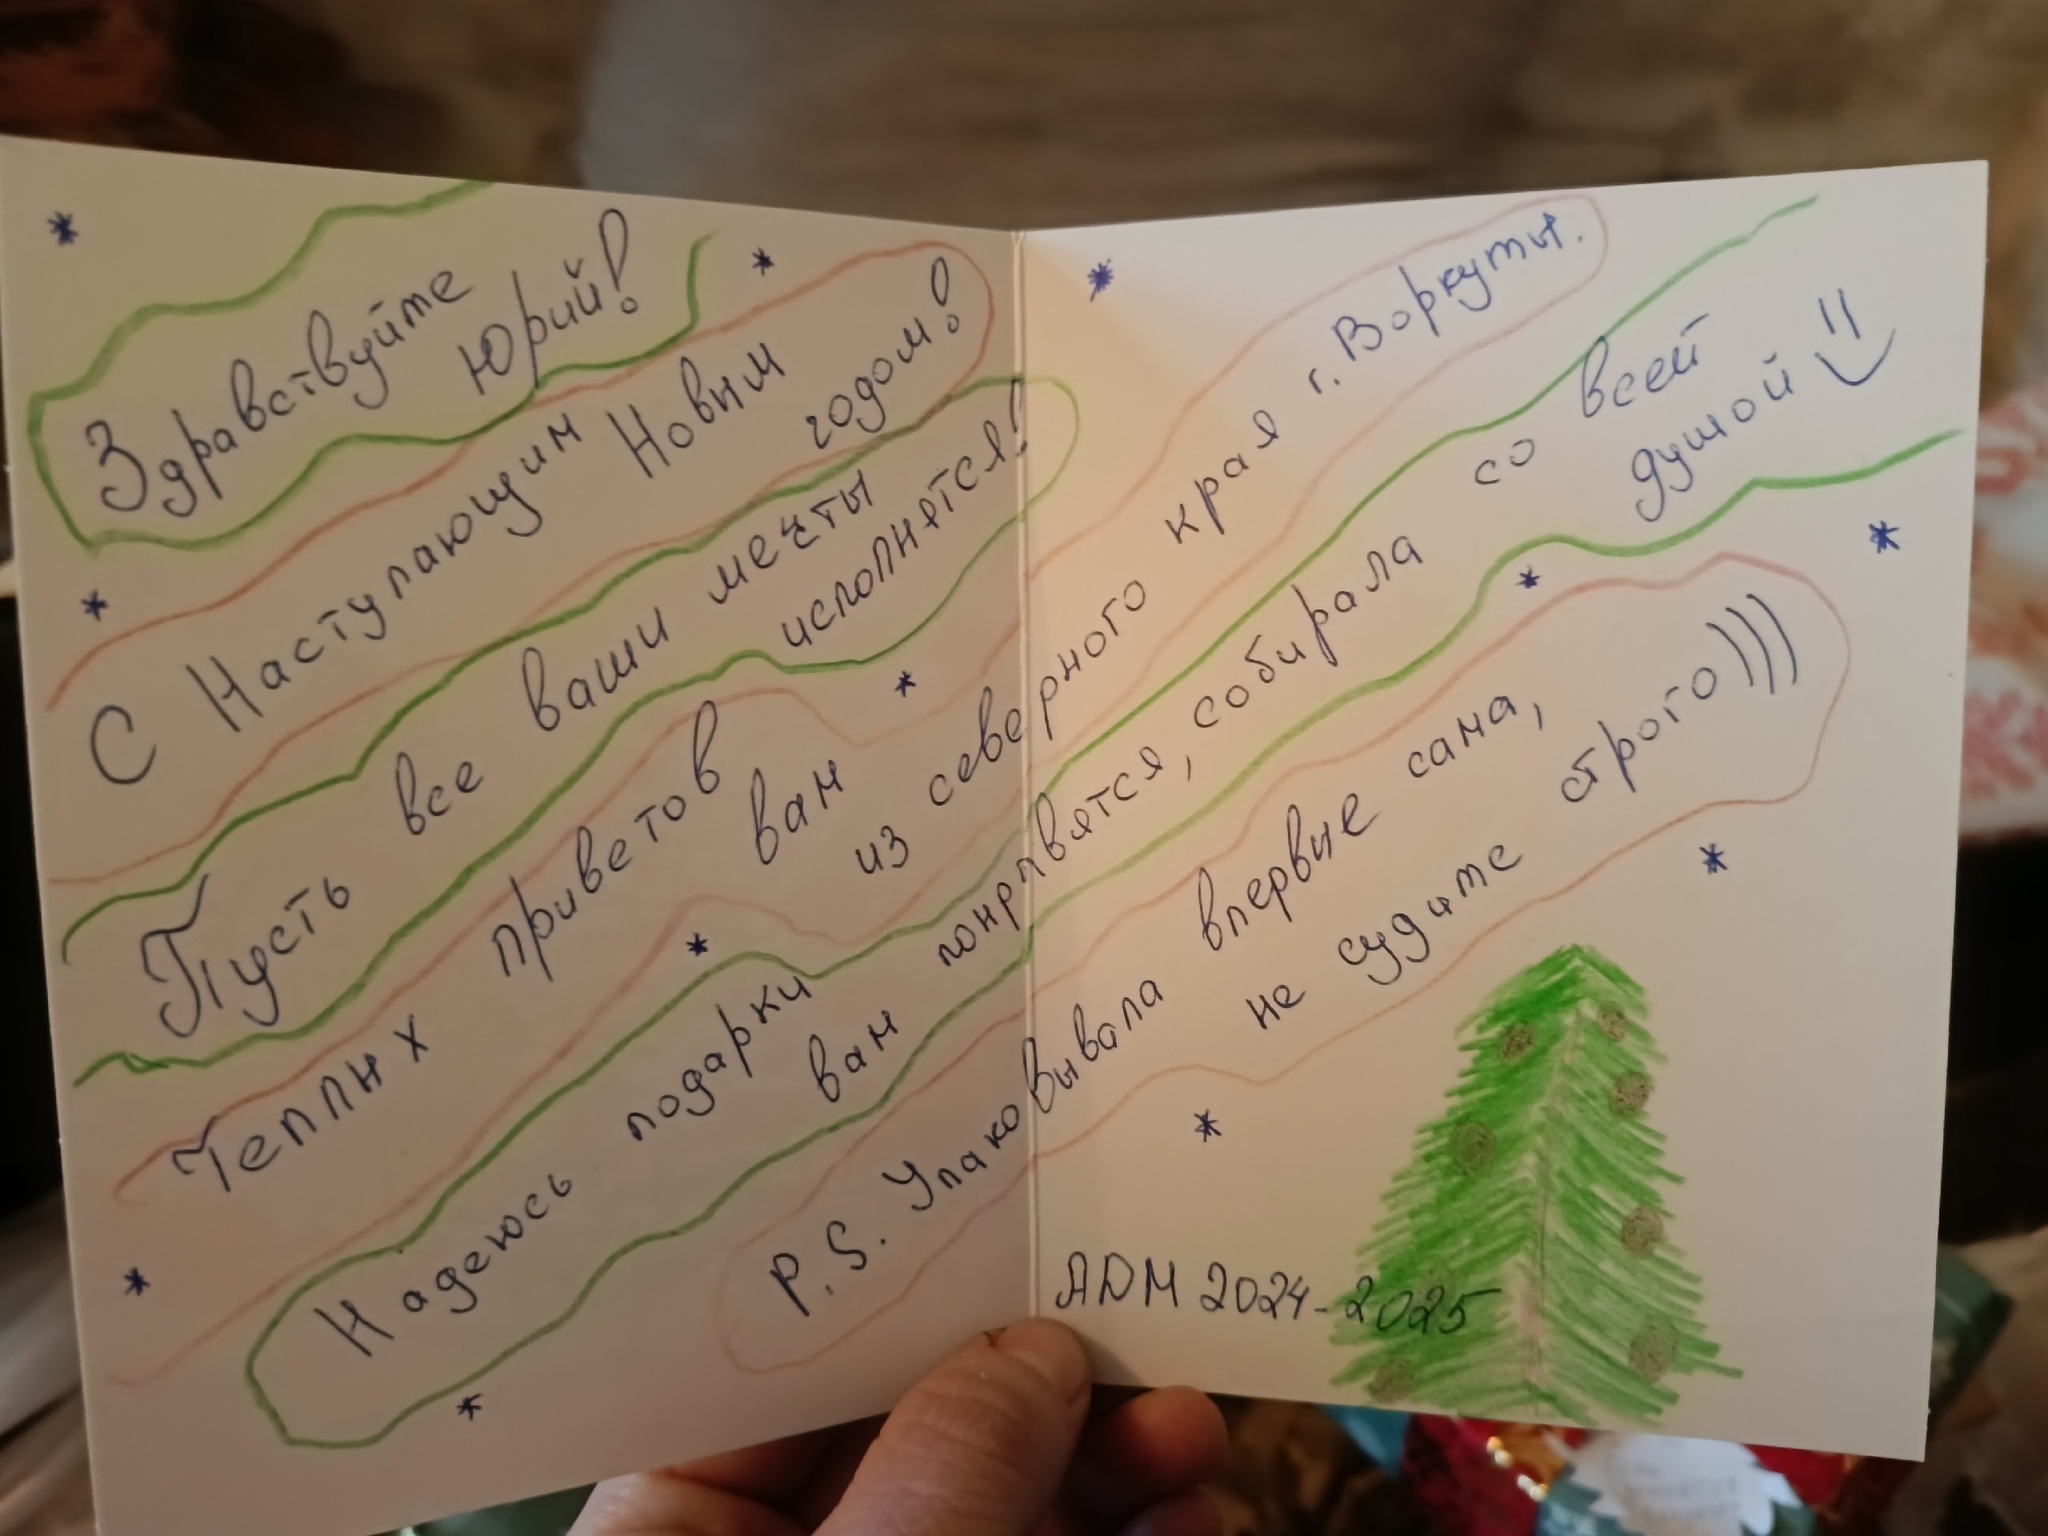 Здравствуйте
Юрий!
С Наступающим Новым
годом!
Пусть все ваши мечты
исполнятся!
Теплых приветов вам
из северного края г. Воркуты.
Надеюсь подарки
вам понрпвятся, собирала со всей
душой
P.S. Упаковывала впервые сама,
не судите строго)))
АДМ 2024-2025